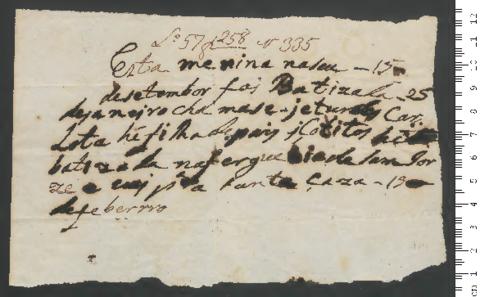 Lo 57 f 258 N 335
Esta menina naseu - 15
desetembor foi Batizada - 25
dejaneiro cha mase - jeturdes Car
lota he filha de pais jCotitos he
batizada nafergua zia de San Jor
ze e esta Santa Caza - 19
defeberrro